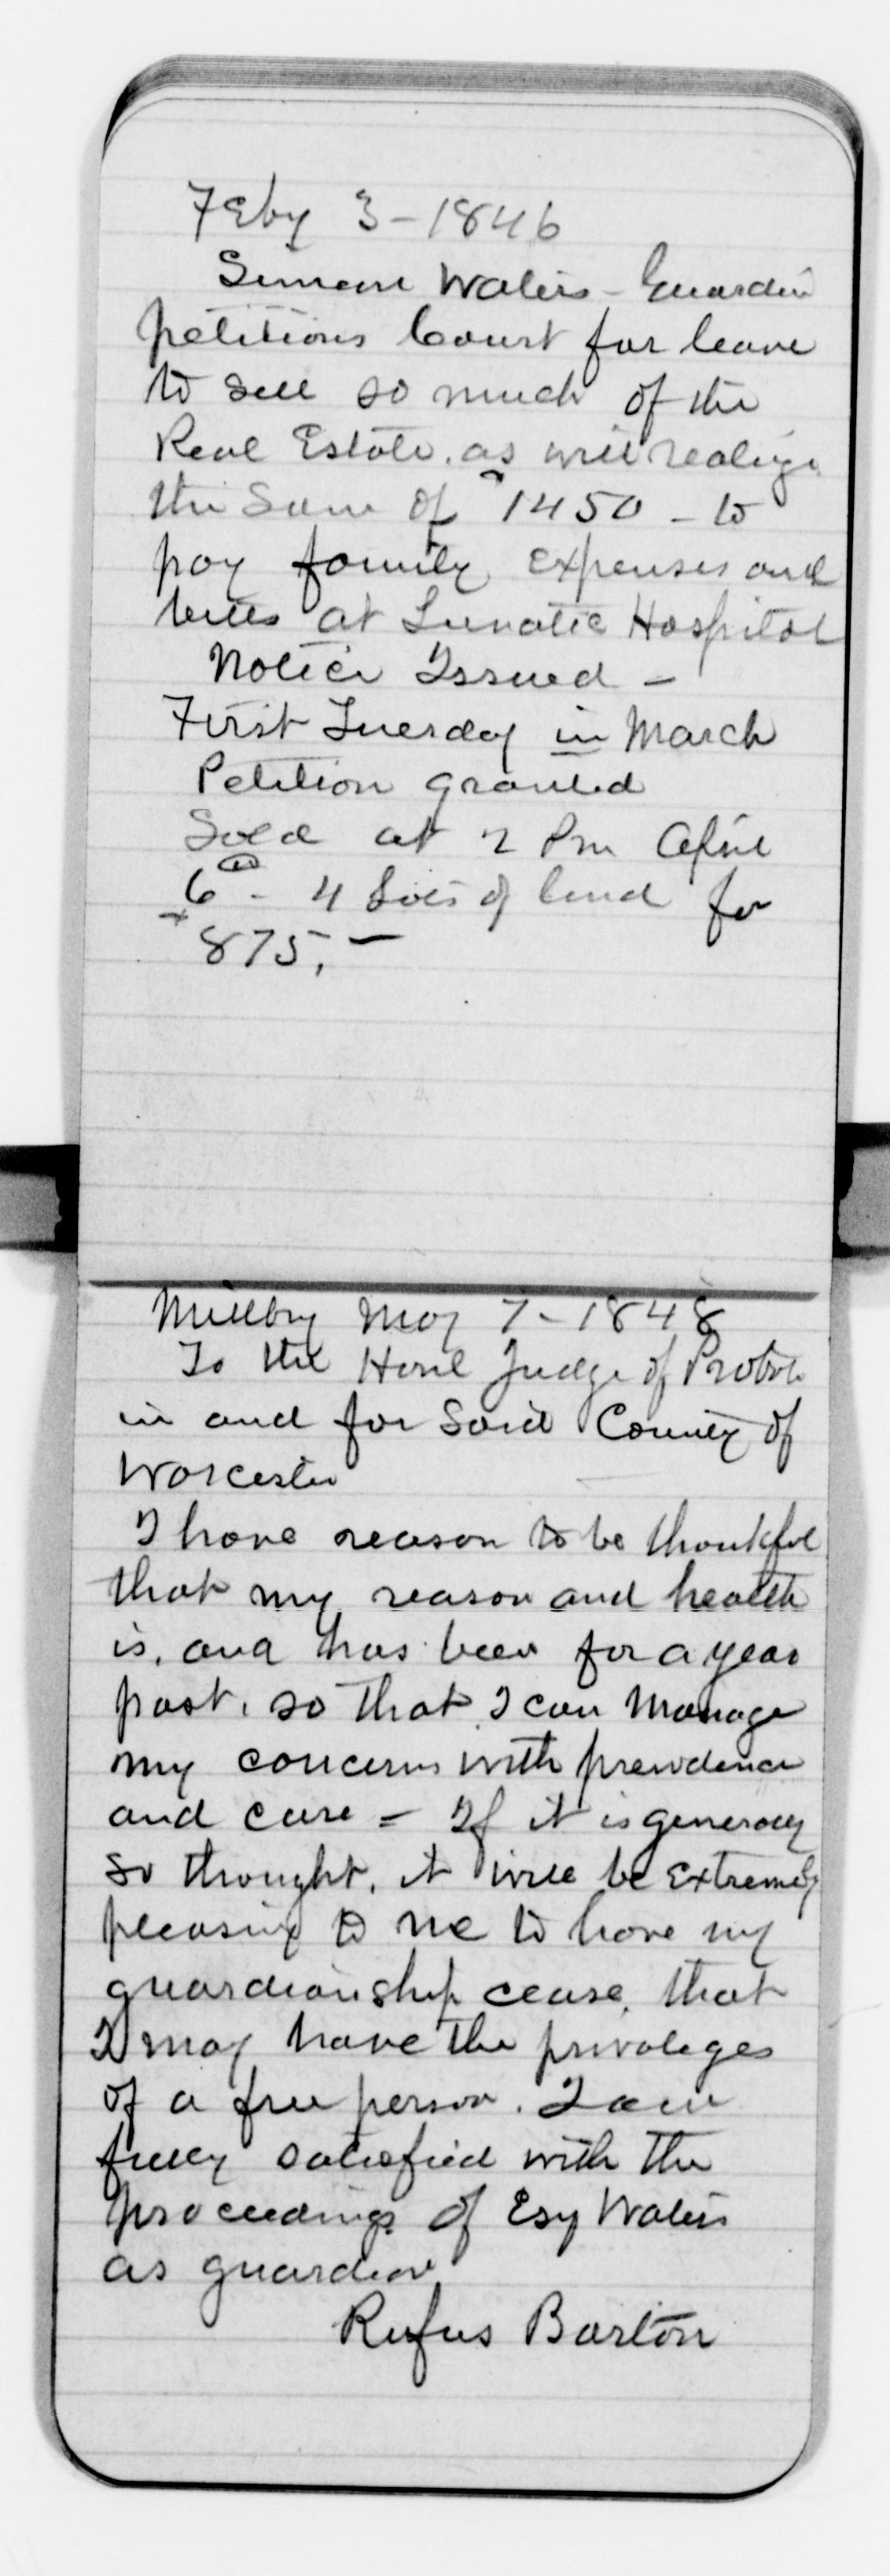 Feby 3 - 1846
Simeon Waters - Guardin
petitions Court for leave
to sell so much of the
Real Estate. as will realize
the Sum of 1450 - to
pay family expenses and
bills at Lunatic Hospital
Notice Issued -
First Tuesday in March
Petition granted
Sold at 2 Pm April
6th - 4 Lots of land for
875. -
Millbry May 7 - 1848
To the Honl Judge of Probate
in and for Said County of
Worcester
I have reason to be thankful
that my reason and health
is, and has been for a year
past, so that I can Manage
my concerns with prewdence
and care = If it is generaly
so thought, it will be Extremely
pleasing to me to have my
guardianship cease, that
I may have the privaleges
of a free person. I am
fully satisfied with the
proceedings of Esq Waters
as guardian
Rufus Barton